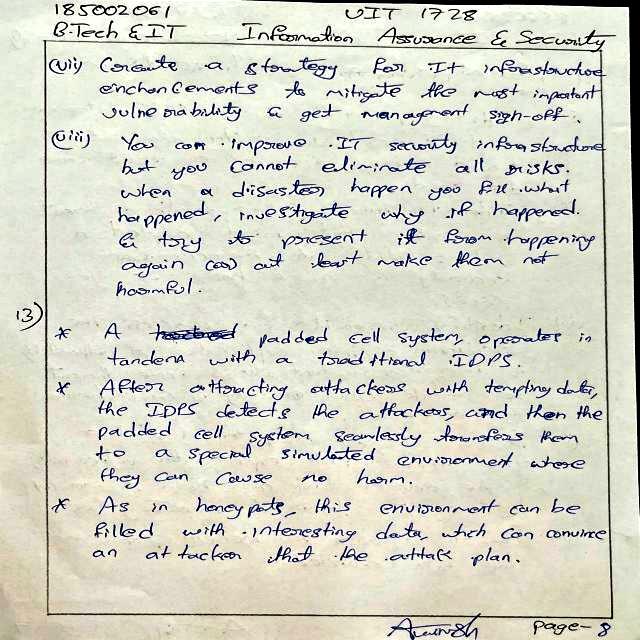 185002061 UIT 1728
B.Tech & IT Information Assurance & Security
(vii) Coreate a strategy for IT infrastructure
enchancements to mitigate the most important
vulnerability & get management sign-off.
(viii) You can improve IT security infrastructure
but you cannot eliminate all risks.
when a disaster happen you fix what
happened, investigate why if happened.
& try to present it from happening
again (or) at least make them not
harmful.
13)
* A padded cell system, operates in
tandem with a traditional IDPS.
* After attracting attackers with tempting data,
the IDPS detects the attackers, and then the
padded cell system seamlessly transfers them
to a special simulated environment where
they can cause no harm.
* As in honeypots, this environment can be
filled with interesting data, which can convince
an attacker that the attack plan.
page-8